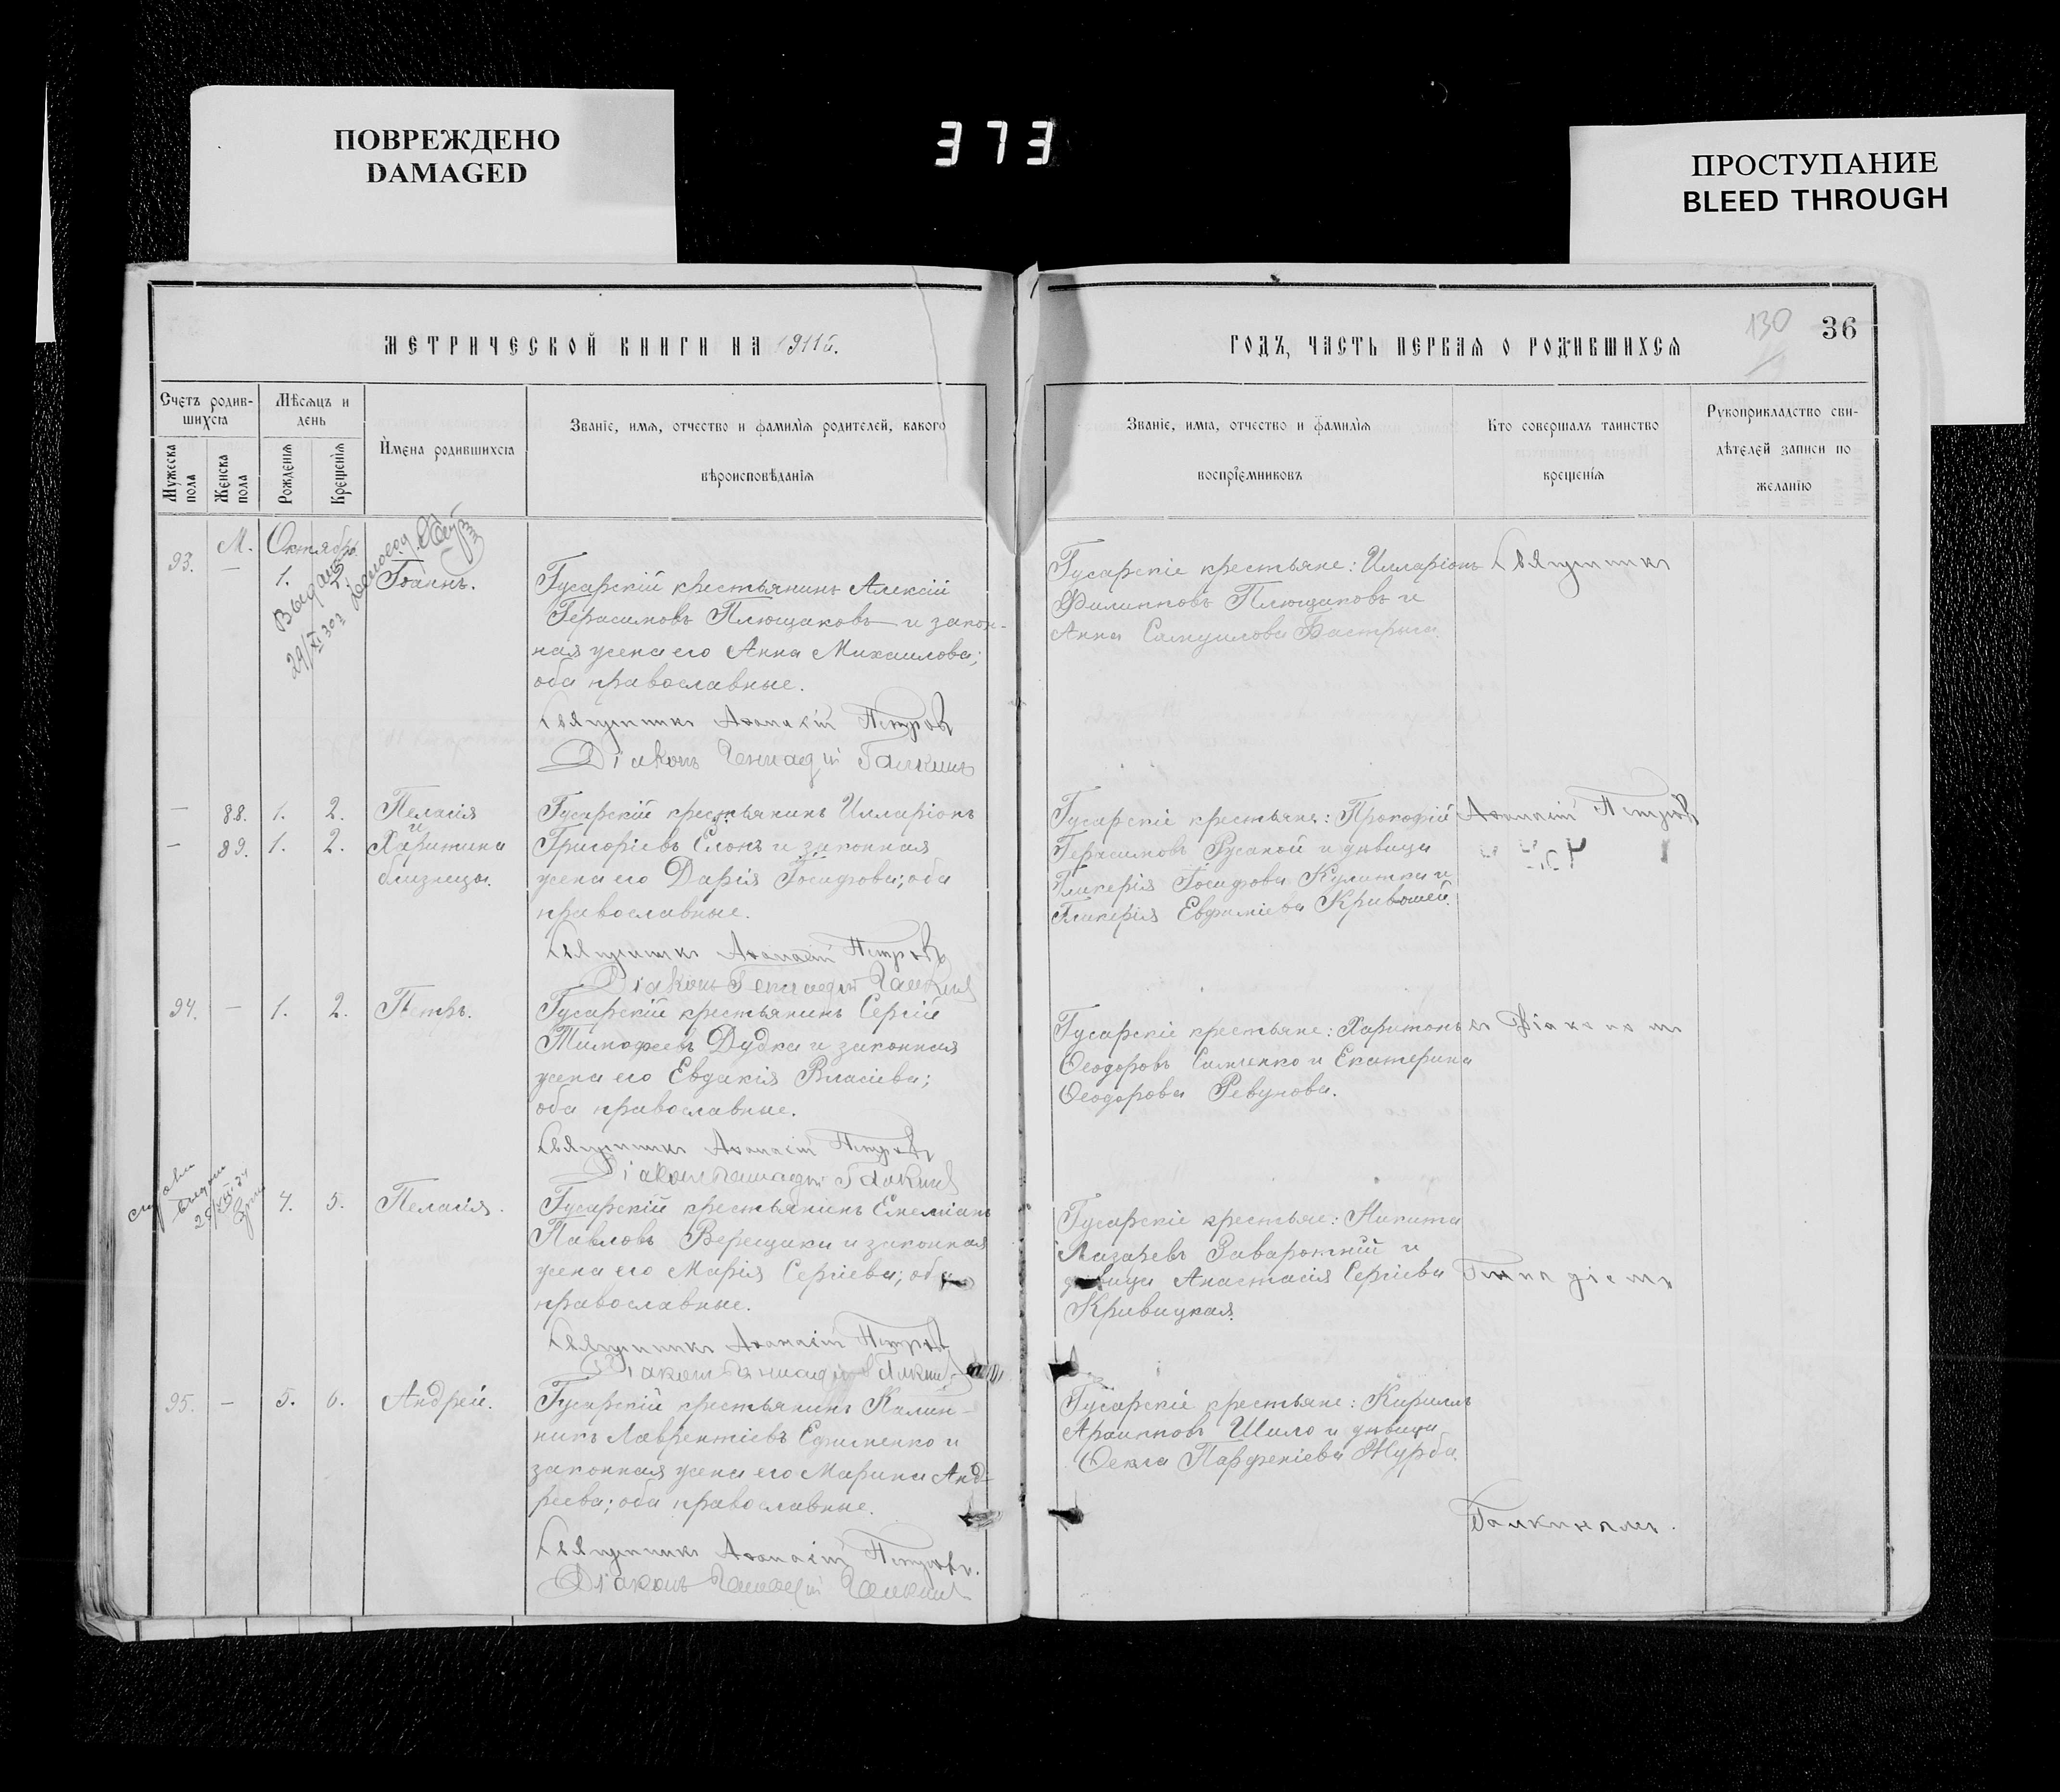 ПОВРЕЖДЕНО
DAMAGED
373
ПРОСТУПАНИЕ
BLEED THROUGH
МЕТРИЧЕСКОЙ КНИГИ НА 1911 г.
Счетъ родив-
шихся
Мужеска пола
Женска пола
Мѣсяцъ и
день
Рожденія
Крещенія
Имена родившихся
Званіе, имя, отчество и фамилія родителей, какого
вѣроисповѣданія
М. Октябрь.
93. — 1. 2. Іоаннъ.
Гусарскій крестьянинъ Алексій
Герасимовъ Плющаковъ и закон-
ная жена его Анна Михаилова;
оба православные.
Священникъ Аѳанасій Петровъ
Діаконъ Геннадій Галкинъ
— 88. 1. 2. Пелагія
и
— 89. 1. 2. Харитина
близнецы.
Гусарскій крестьянинъ Илларіонъ
Григоріевъ Слонъ и законная
жена его Дарія Іосифова; оба
православные.
Священникъ Аѳанасій Петровъ
Діаконъ Геннадій Галкинъ
94. — 1. 2. Петръ.
Гусарскій крестьянинъ Сергій
Тимофеевъ Дудка и законная
жена его Евдокія Власіева;
оба православные.
Священникъ Аѳанасій Петровъ
Діаконъ Геннадій Галкинъ
4. 5. Пелагія.
Гусарскій крестьянинъ Емеліанъ
Павловъ Верещака и законная
жена его Марія Сергіева; оба
православные.
Священникъ Аѳанасій Петровъ
Діаконъ Геннадій Галкинъ
95. — 5. 6. Андрей.
Гусарскій крестьянинъ Калин-
никъ Лаврентіевъ Ефименко и
законная жена его Марина Анд-
реева; оба православные.
Священникъ Аѳанасій Петровъ.
Діаконъ Геннадій Галкинъ
130
36
ГОДЪ, ЧАСТЬ ПЕРВАЯ О РОДИВШИХСЯ
Званіе, имя, отчество и фамилія
воспріемниковъ
Кто совершалъ таинство
крещенія
Рукоприкладство сви-
дѣтелей записи по
желанію
Гусарскіе крестьяне: Илларіонъ
Филипповъ Плющаковъ и
Анна Самуилова Бастрыга.
Священникъ
Гусарскіе крестьяне: Прокофій
Герасимовъ Русакой и дѣвицы
Гликерія Іосифова Кулитка и
Гликерія Евфиміева Кривошей.
Аѳанасій Петровъ
Гусарскіе крестьяне: Харитонъ
Ѳеодоровъ Симченко и Екатерина
Ѳеодорова Ревунова.
съ Діакономъ
Гусарскіе крестьяне: Никита
Лазаревъ Заваротній и
дѣвица Анастасія Сергіева
Кривицкая.
Геннадіемъ
Гусарскіе крестьяне: Кириллъ
Архипповъ Шило и дѣвица
Ѳекла Парфеніева Журба.
Галкинымъ.